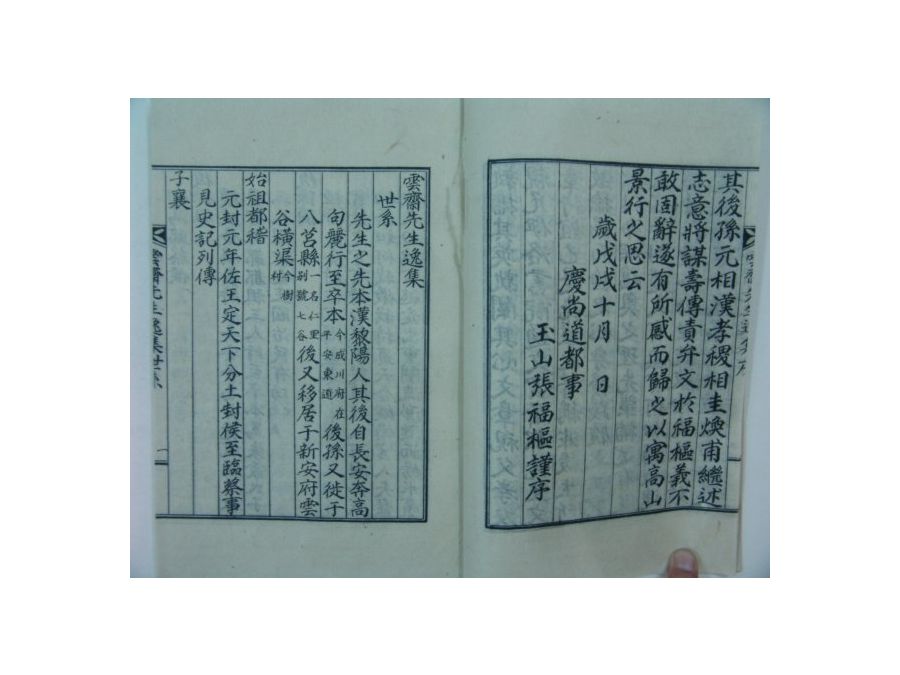 其後孫元相漢孝稷相圭煥甫繼述
志意將謀壽傳責弁文於福樞義不
敢固辭遂有所感而歸之以寓高山
景行之思云
歲戊戌十月 日
慶尚道都事
玉山張福樞謹序
雲齋先生逸集
世系
先生之先本漢黎陽人其後自長安奔高
句麗行至卒本今成川府在平安東道後孫又徙于
八莒縣一名仁里別號七谷後又移居于新安府雲
谷橫渠今樹村
始祖都稽
元封元年佐王定天下分土封侯至臨蔡事
見史記列傳
子襄
雲齋先生逸集世系 一